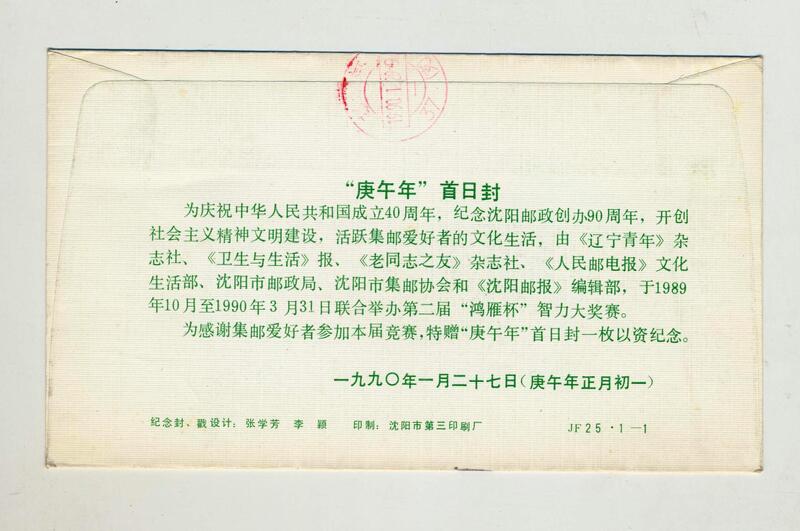 “庚午年”首日封
为庆祝中华人民共和国成立40周年，纪念沈阳邮政创办90周年，开创
社会主义精神文明建设，活跃集邮爱好者的文化生活，由《辽宁青年》杂
志社、《卫生与生活》报、《老同志之友》杂志社、《人民邮电报》文化
生活部、沈阳市邮政局、沈阳市集邮协会和《沈阳邮报》编辑部，于1989
年10月至1990年3月31日联合举办第二届“鸿雁杯”智力大奖赛。
为感谢集邮爱好者参加本届竞赛，特赠“庚午年”首日封一枚以资纪念。
一九九〇年一月二十七日（庚午年正月初一）
纪念封、戳设计：张学芳 李颖 印制：沈阳市第三印刷厂 JF25·1－1